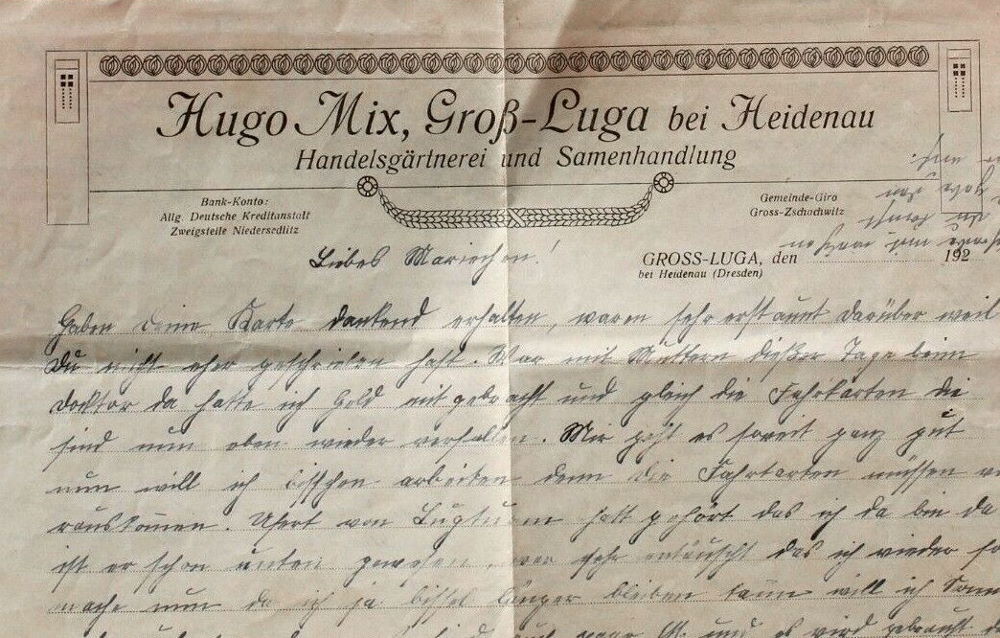 Hugo Mix, Groß-Luga bei Heidenau
Handelsgärtnerei und Samenhandlung
Bank-Konto:
Allg. Deutsche Kreditanstalt
Zweigstelle Niedersedlitz
Gemeinde-Giro
Gross-Zschachwitz
GROSS-LUGA, den 192
bei Heidenau (Dresden)
Liebes Mariechen!
Haben deine Karte dankend erhalten, waren sehr erstaunt darüber weil
Du nicht eher geschrieben hast. War mit Muttern dießer Tage beim
Docktor da hatte ich Geld mitgebracht und gleich die Fahrkarten die
sind nun eben wieder verfallen. Mir geht es soweit ganz gut
nun will ich bisschen arbeiten denn die Fahrkarten müssen
rauskommen. von Lugturm hatt gehört das ich da bin da
ist er schon unten gewesen, war sehr entäuscht das ich wieder
mache nun da ich ja bissel länger bleiben kann will ich
und es wird gebraucht